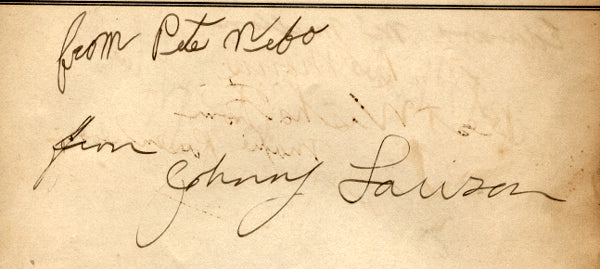 from Pete Nebo
from
Johnny Lawson